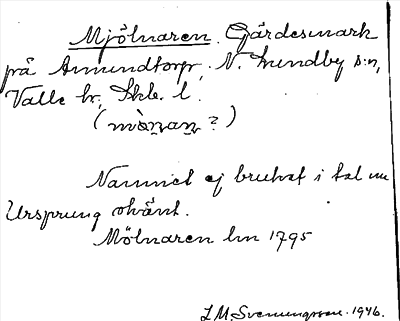 Mjölnaren. Gärdesmark
på Amundtorp, N. Lundby s:n,
Valle hr, Skb. l.
(mò̱ṉaṉ ?)
Namnet ej brukat i tal nu
Ursprung okänt.
Mölnaren lm 1795
L M Svenungsson. 1946.